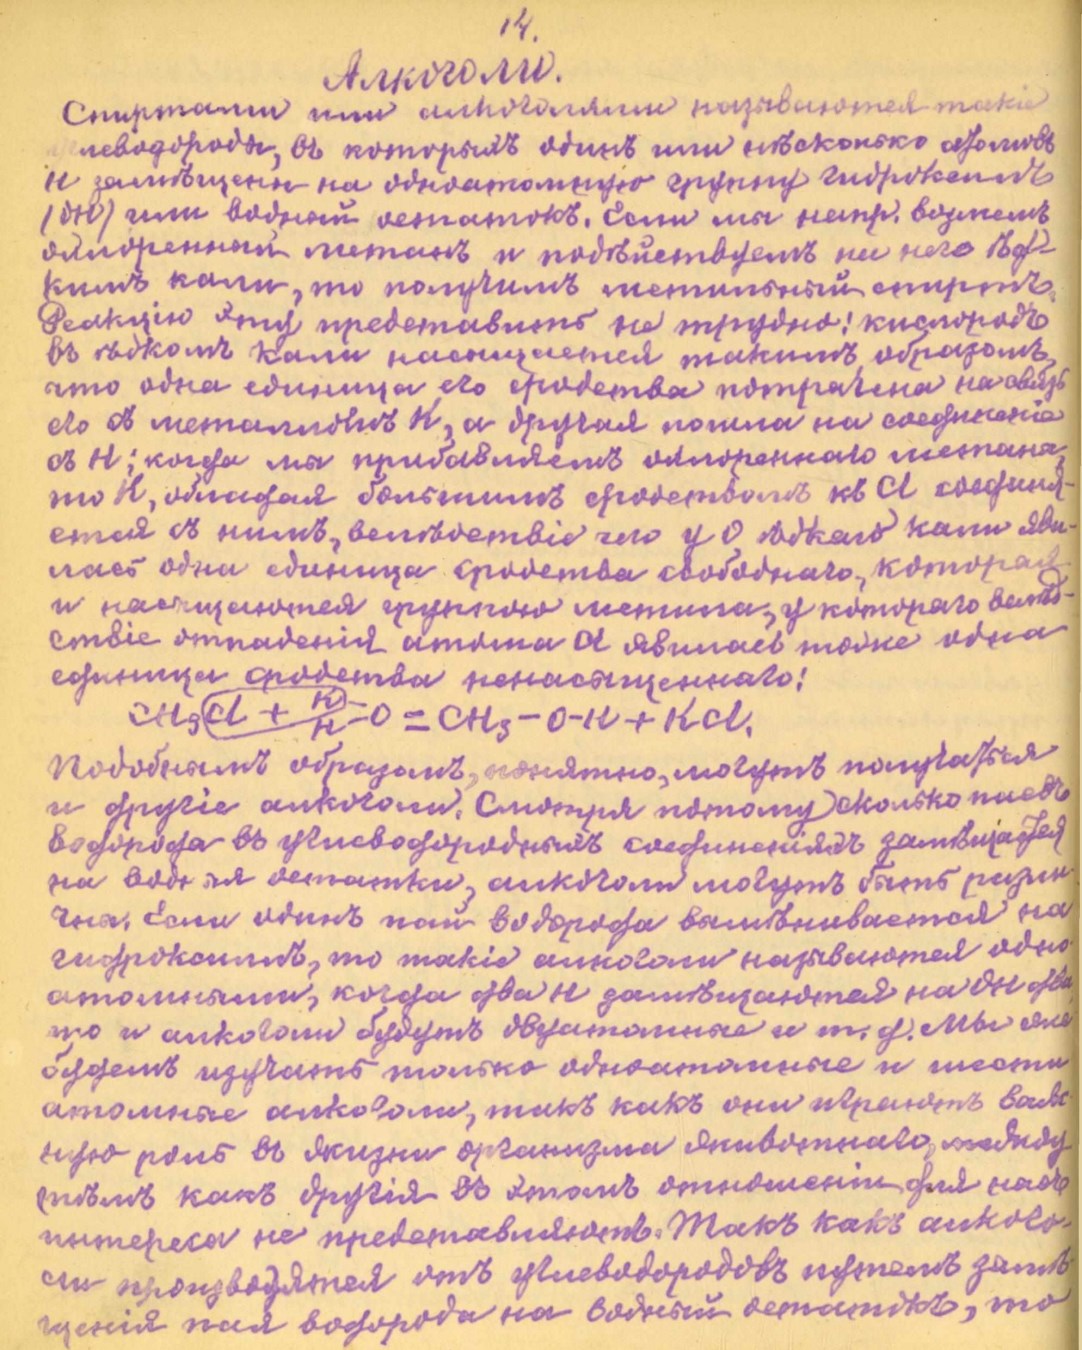 14.
Алкоголи.
Спиртами или алкоголями называются такіе
углеводороды, въ которыхъ одинъ или нѣсколько атомовъ
H замѣщены на одноатомную группу гидроксилъ
(OH) или водный остатокъ. Если мы напр. возмемъ
охлоренный метанъ и подѣйствуемъ на него ѣд-
кимъ кали, то получимъ метильный спиртъ.
Реакцію эту представить не трудно: кислородъ
въ ѣдкомъ кали насыщается такимъ образомъ,
что одна единица его сродства потрачена на связь
его съ металломъ K, а другая пошла на соединеніе
съ H; когда мы прибавляемъ охлореннаго метана,
то K, обладая большимъ сродствомъ къ Cl соединя-
ется съ нимъ, вслѣдствіе чего у O ѣдкаго кали яви-
лась одна единица сродства свободнаго, которая
и насыщаются группою метила, у котораго вслѣд-
ствіе отпаденія атома Cl явилась тоже одна
единица сродства ненасыщеннаго:
CH₃Cl + K/H–O = CH₃–O–H + KCl.
Подобнымъ образомъ, понятно, могутъ получаться
и другіе алкоголи. Смотря потому сколько паевъ
водорода въ углеводородныхъ соединеніяхъ замѣщается
на водныя остатки, алкоголи могутъ быть разли-
чны. Если одинъ пай водорода вымѣнивается на
гидроксилъ, то такіе алкоголи называются одно-
атомными, когда два H замѣщаются на OH два,
то и алкоголи будутъ двуатомные и т. д. Мы же
будемъ изучать только одноатомные и шести
атомные алкоголи, такъ какъ они играютъ важ-
ную роль въ жизни организма животнаго, между
тѣмъ какъ другія въ этомъ отношеніи для насъ
интереса не представляютъ. Такъ какъ алкого-
ли производятся отъ углеводородовъ путемъ замѣ-
щенія пая водорода на водный остатокъ, то